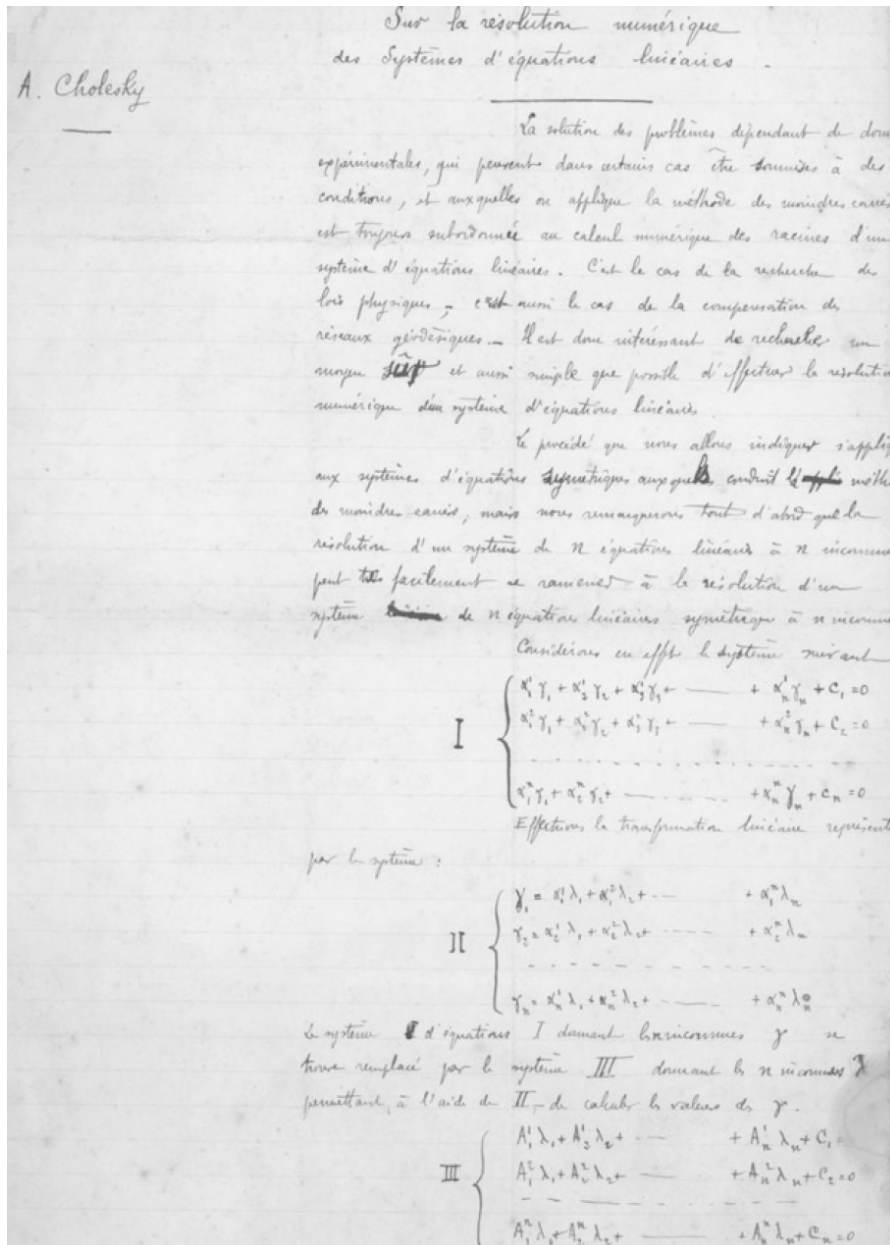 Sur la résolution numérique
des Systèmes d'équations linéaires .
A. Cholesky
La solution des problèmes dépendant de donn
expérimentales, qui peuvent dans certains cas être soumises à des
conditions, et auxquelles on applique la méthode des moindres carrés
est toujours subordonnée au calcul numérique des racines d'un
système d'équations linéaires . C'est le cas de la recherche des
lois physiques ; c'est aussi le cas de la compensation des
réseaux géodésiques . — Il est donc intéressant de rechercher un
moyen sûr et aussi simple que possible d'effectuer la résolution
numérique d'un système d'équations linéaires .
Le procédé que nous allons indiquer s'appliq
aux systèmes d'équations symétriques auxquels conduit la méth
des moindres carrés ; mais nous remarquerons tout d'abord que la
résolution d'un système de n équations linéaires à n inconnue
peut très facilement se ramener à la résolution d'un
système de n équations linéaires symétrique à n inconnue
Considérons en effet le système suivant
I
α₁¹ γ₁ + α₂¹ γ₂ + α₃¹ γ₃ + —— + αₙ¹ γₙ + C₁ = 0
α₁² γ₁ + α₂² γ₂ + α₃² γ₃ + —— + αₙ² γₙ + C₂ = 0
- - - - - - - - - -
α₁ⁿ γ₁ + α₂ⁿ γ₂ + —— + αₙⁿ γₙ + Cₙ = 0
Effectuons la transformation linéaire représent
par le système :
II
γ₁ = α₁¹ λ₁ + α₁² λ₂ + —— + α₁ⁿ λₙ
γ₂ = α₂¹ λ₁ + α₂² λ₂ + —— + α₂ⁿ λₙ
- - - - - - - - - -
γₙ = αₙ¹ λ₁ + αₙ² λ₂ + —— + αₙⁿ λₙ
Le système d'équations I donnant les inconnues γ se
trouve remplacé par le système III donnant les n inconnues λ
permettant, à l'aide de II, de calculer les valeurs des γ .
III
A₁¹ λ₁ + A₂¹ λ₂ + —— + Aₙ¹ λₙ + C₁ =
A₁² λ₁ + A₂² λ₂ + —— + Aₙ² λₙ + C₂ = 0
- - - - - - - - - -
A₁ⁿ λ₁ + A₂ⁿ λ₂ + —— + Aₙⁿ λₙ + Cₙ = 0